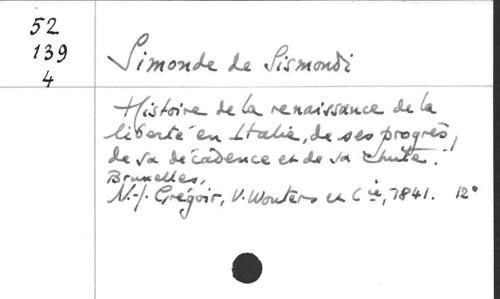 52
139
4
Simonde de Sismondi
Histoire de la renaissance de la
liberté en Italie, de ses progrès,
de sa décadence et de sa chute.
Bruxelles,
N.-J. Grégoir, V. Wouters et Cie, 1841. 12°